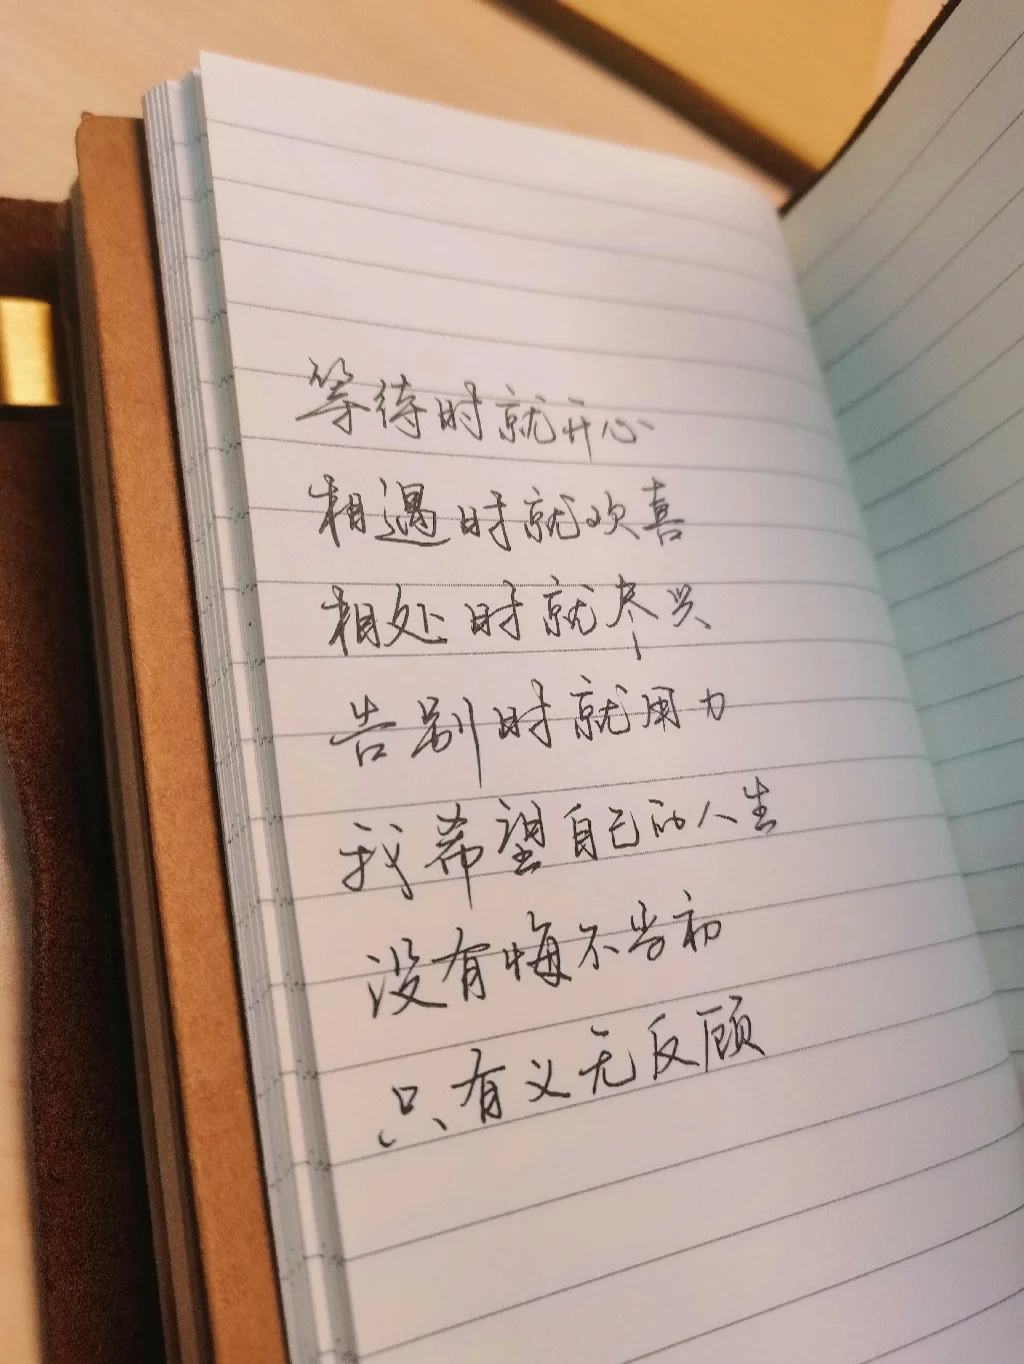 等待时就开心
相遇时就欢喜
相处时就尽兴
告别时就用力
我希望自己的人生
没有悔不当初
只有义无反顾